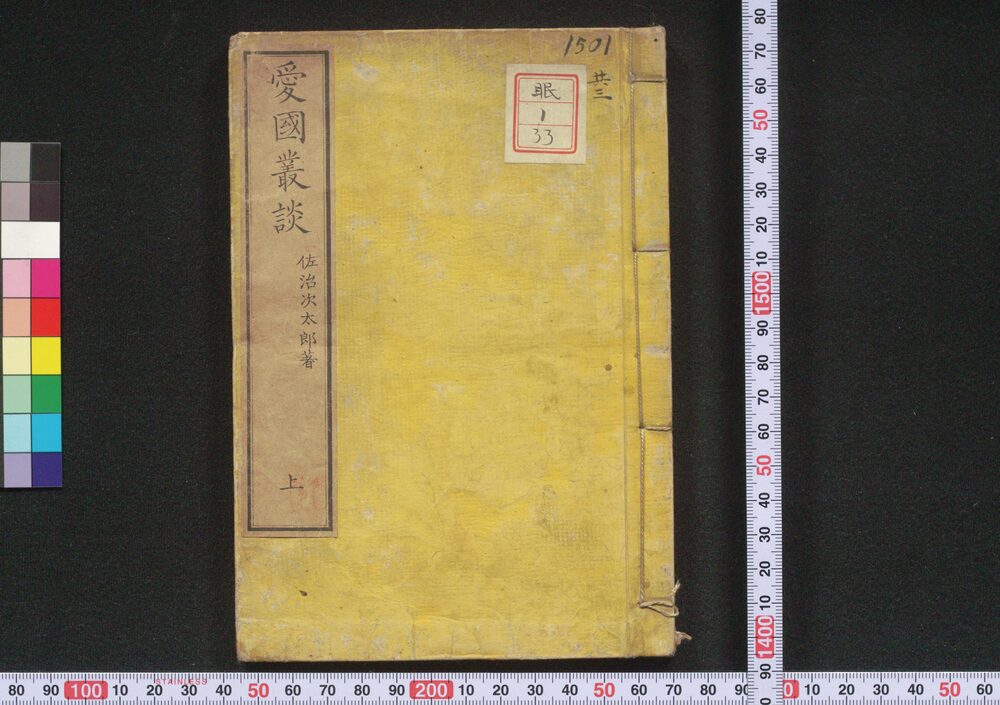 愛國叢談
佐治次太郎著
上
1501
廿三
眠
1
33
80
70
60
50
40
30
20
10
1500
90
80
70
60
50
40
30
20
10
1400
90
80 100 10 20 30 40 50 60 70 80 90 200 10 20 30 40 50 60 70 80 90 0 10 20 30 40 50 60
STAINLESS